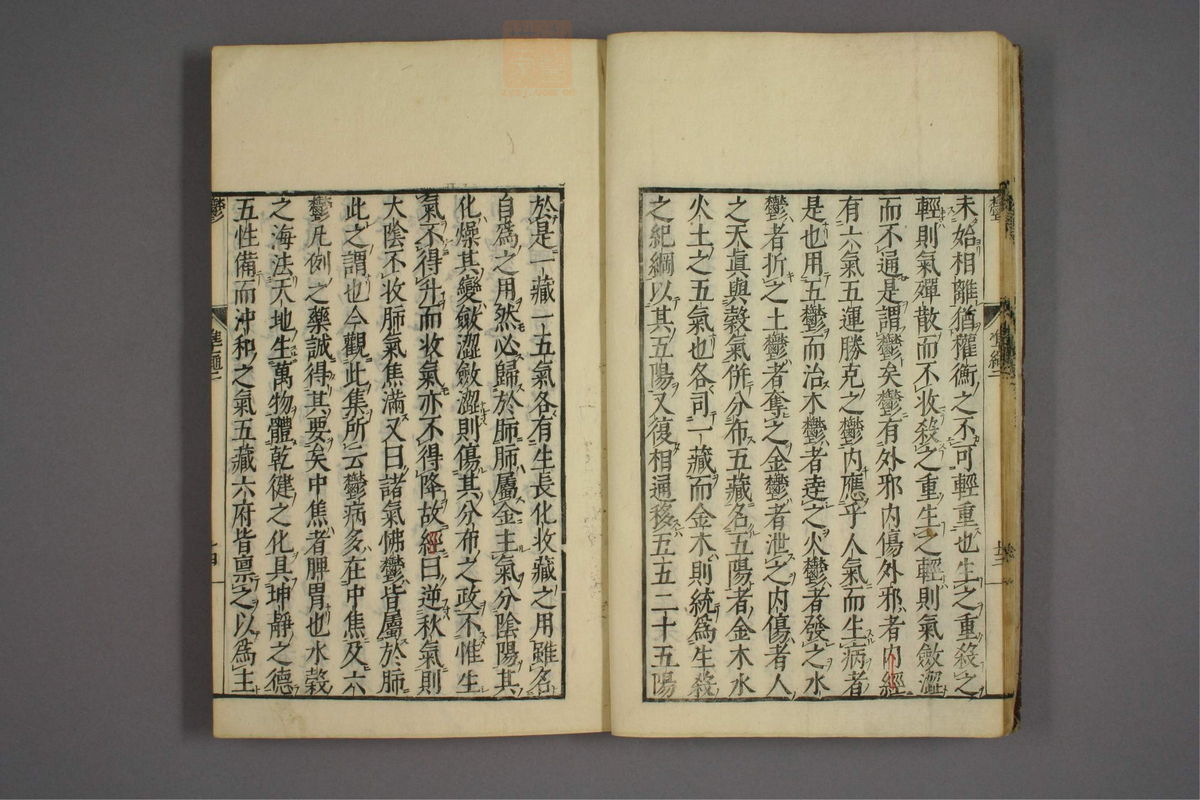 未始相離猶權衡之不可輕重也生之重殺之
輕則氣殫散而不收殺之重生之輕則氣斂澀
而不通是謂鬱矣鬱有外邪内傷外邪者内經
有六氣五運勝克之鬱内應乎人氣而生病者
是也用五鬱而治木鬱者達之火鬱者發之水
鬱者折之土鬱者奪之金鬱者泄之内傷者人
之天真與穀氣併分布五藏名五陽者金木水
火土之五氣也各司一藏而金木則統爲生殺
之紀綱以其五陽又復相通移五五二十五陽
於是一藏一五氣各有生長化收藏之用雖名
自爲之用然必歸於肺肺屬金主氣分陰陽其
化燥其變斂澀斂澀則傷其分布之政不惟生
氣不得升而收氣亦不得降故經曰逆秋氣則
大陰不收肺氣焦滿又曰諸氣怫鬱皆屬於肺
此之謂也今觀此集所云鬱病多在中焦及六
鬱凡例之藥誠得其要矣中焦者脾胃也水穀
之海法天地生萬物體乾健之化具坤靜之德
五性備而沖和之氣五藏六府皆禀之以爲主
鬱
十四